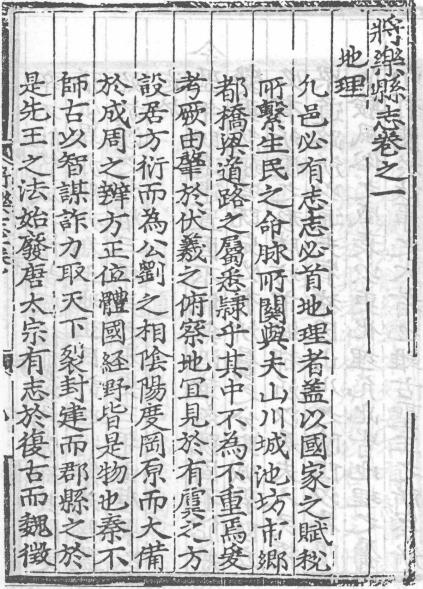 將樂縣志卷之一
地理
凡邑必有志志必首地理者盖以國家之賦稅
所繫生民之命脉所關與夫山川城池坊市鄉
都橋與道路之屬悉隸乎其中不為不重焉爰
考厥由肇於伏羲之俯察地冝見於有虞之方
設居方衍而為公劉之相陰陽度岡原而大備
於成周之辨方正位體國経野皆是物也秦不
師古以智謀詐力取天下裂封建而郡縣之於
是先王之法始發唐太宗有志於復古而魏徵